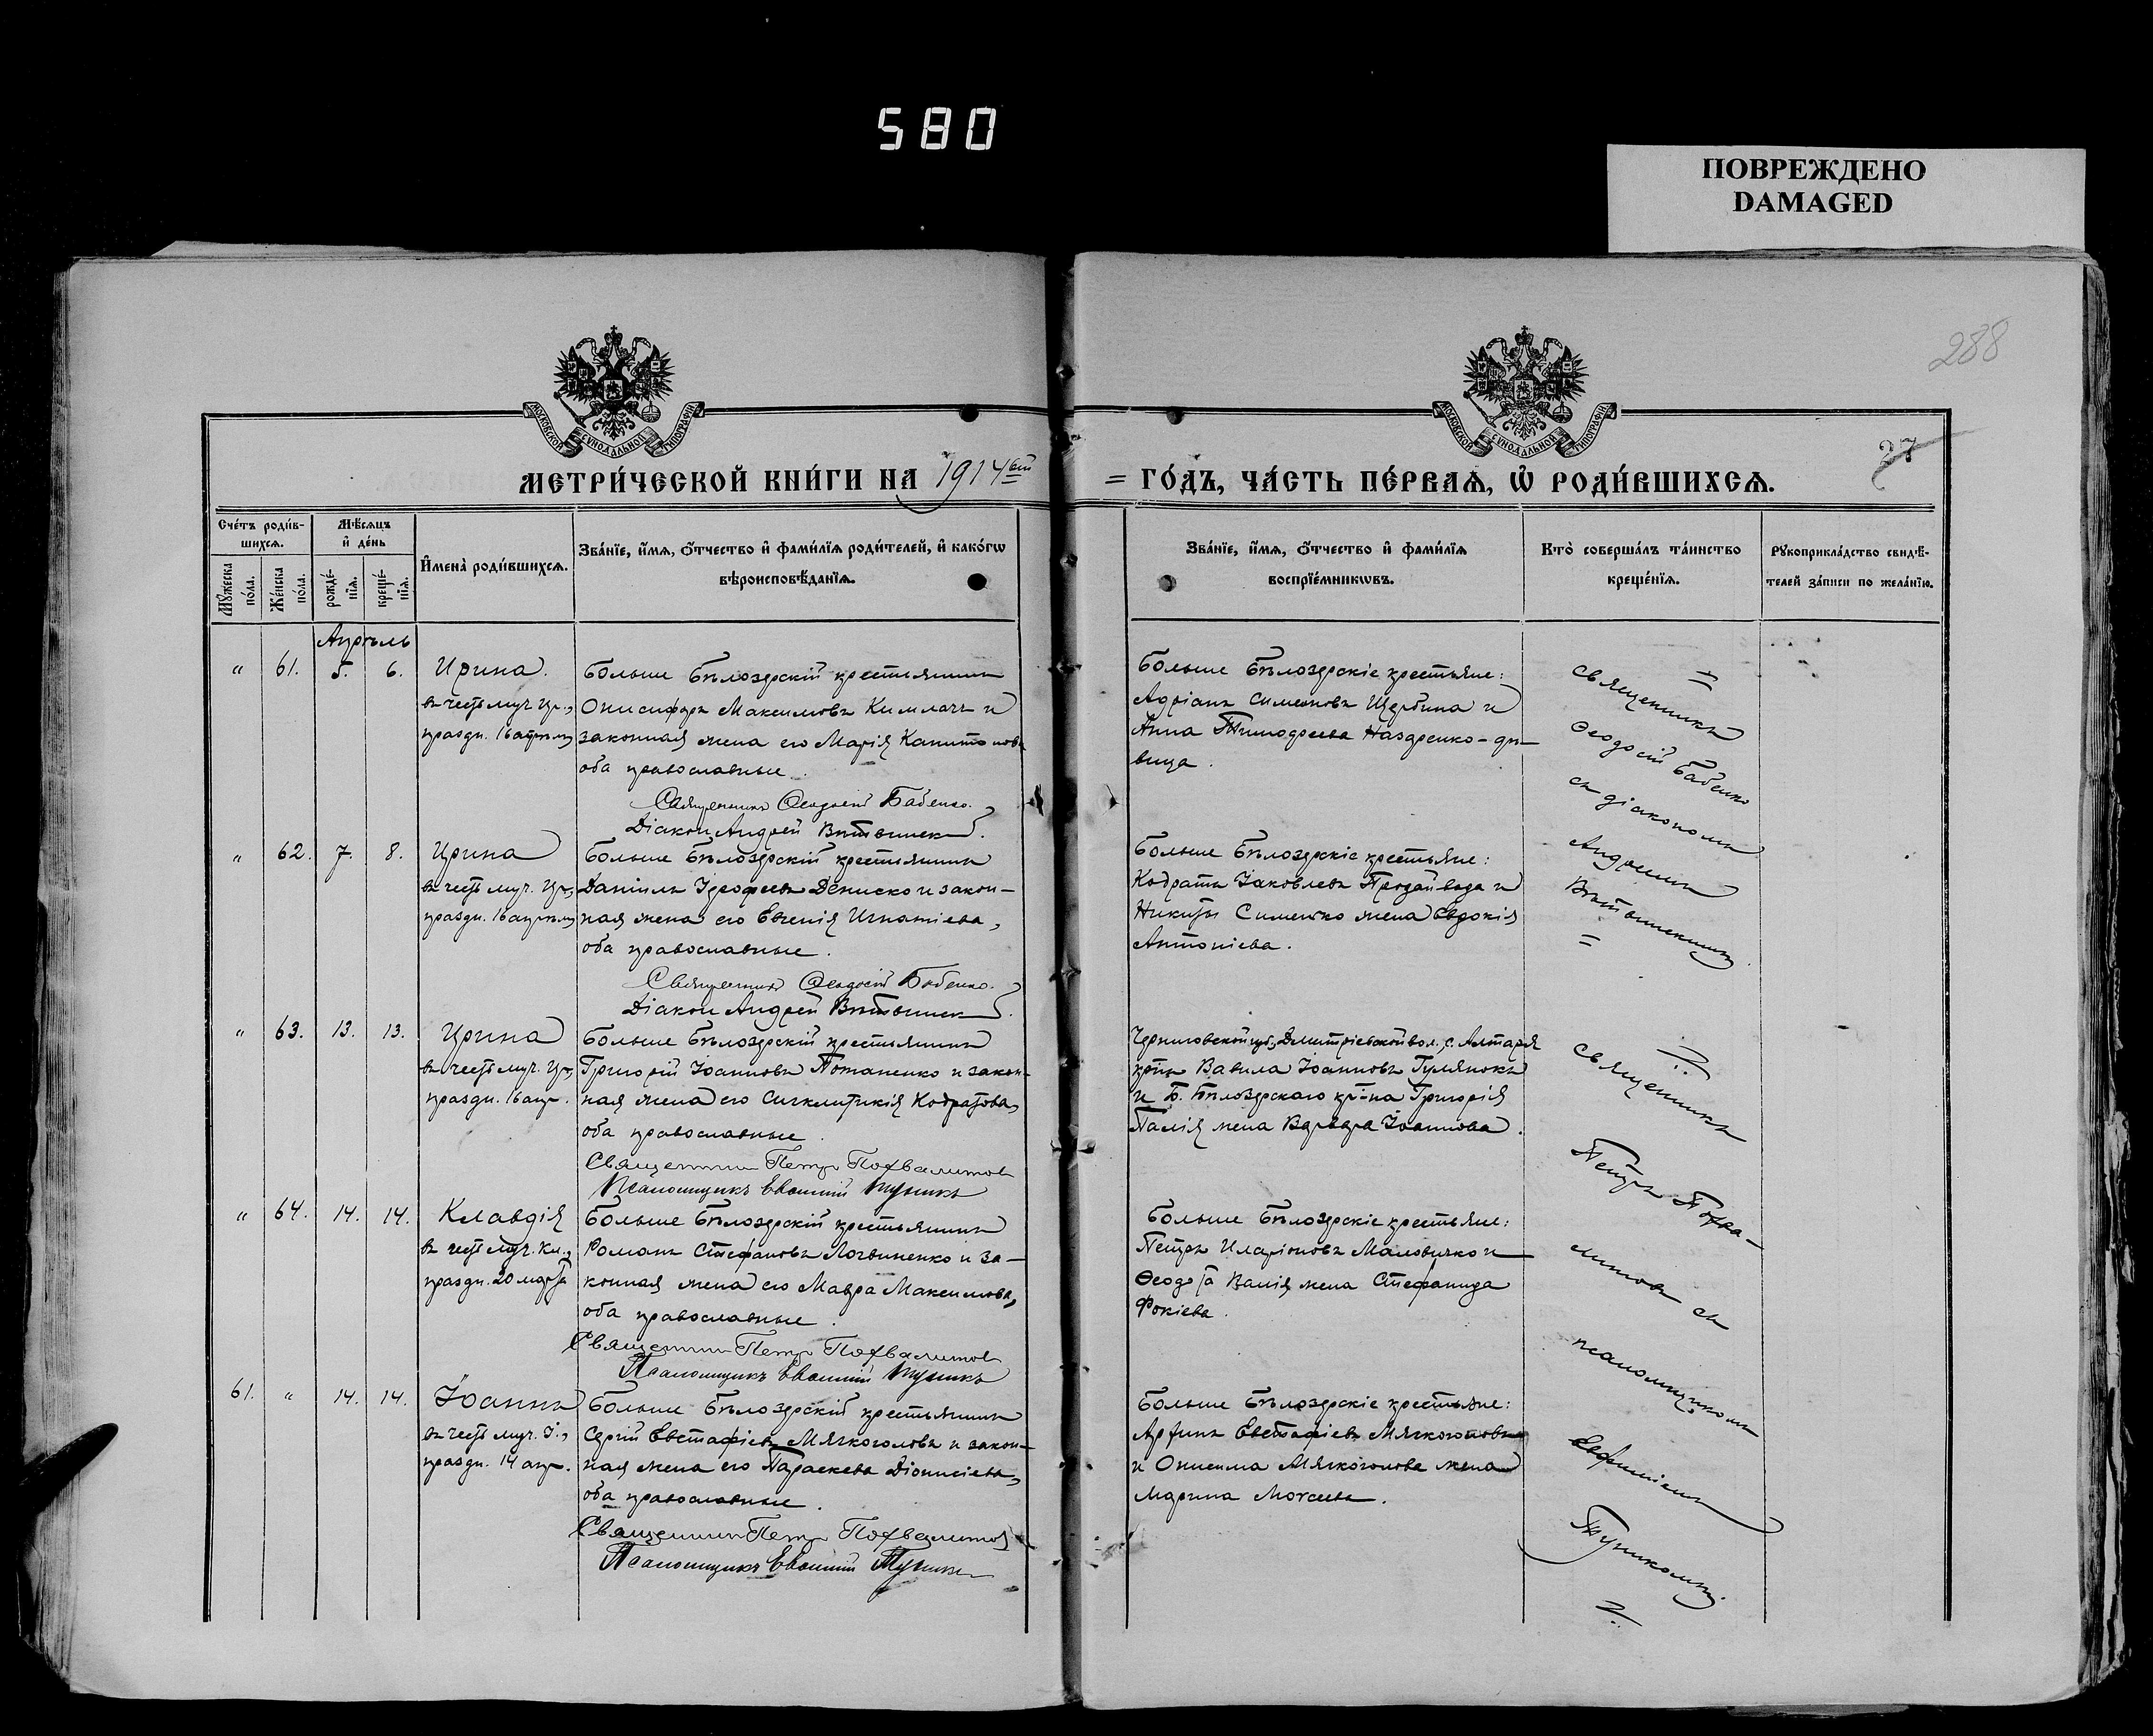 580
ПОВРЕЖДЕНО
DAMAGED
288
МОСКОВСКОЙ СѴНОДАЛЬНОЙ ТИПОГРАФІИ
МОСКОВСКОЙ СѴНОДАЛЬНОЙ ТИПОГРАФІИ
27
МЕТРИ́ЧЕСКОЙ КНИ́ГИ НА 1914 ый = ГО́ДЪ, ЧА́СТЬ ПЕ́РВАѦ, Ѡ РОДИ́ВШИХСѦ.
Сче́тъ роди́в-
шихсѧ.
Мѣ́сѧцъ
и҆ де́нь
Мꙋ́жеска по́ла.
Же́нска по́ла.
рожде́-нїѧ.
креще́-нїѧ.
И҆мена̀ роди́вшихсѧ.
Зва́нїе, и҆́мѧ, ѻ҆́тчество и҆ фами́лїѧ роди́телей, и҆ како́гѡ
вѣроисповѣ́данїѧ.
Зва́нїе, и҆́мѧ, ѻ҆́тчество и҆ фами́лїѧ
воспрїе́мникѡвъ.
Кто̀ соверша́лъ та́инство
креще́нїѧ.
Рꙋкоприкла́дство свидѣ́-
телей за́писи по жела́нїю.
Апрѣль
" 61. 5. 6. Ирина.
въ честь муч. Ир.,
праздн. 16 апрѣля
Больше Бѣлозерскій крестьянинъ
Онисифоръ Максимовъ Кимлачъ и
законная жена его Марія Капитонова
оба православные.
Священникъ Ѳеодосій Бабенко.
Діакон Андрей Витвинск
Больше Бѣлозерскіе крестьяне:
Адріанъ Симеоновъ Щербина и
Анна Тимофеева Назаренко-дѣ-
вица.
Священникъ
Ѳеодосій Бабенко
съ діакономъ
Андреемъ
" 62. 7. 8. Ирина
въ честь муч. Ир.,
праздн. 16 апрѣля
Больше Бѣлозерскій крестьянинъ
Даніилъ Іерофеевъ Дениско и закон-
ная жена его Евгенія Игнатіева,
оба православные.
Священникъ Ѳеодосій Бабенко.
Діакон Андрей Витвинск
Больше Бѣлозерскіе крестьяне:
Кодратъ Іаковлевъ Продайвода и
Никиты Симешко жена Евдокія
Антоніева.
" 63. 13. 13. Ирина
въ честь муч. Ир.,
праздн. 16 апр.
Больше Бѣлозерскій крестьянинъ
Григорій Іоанновъ Потапенко и закон-
ная жена его Сигклитикія Кодратова,
оба православные.
Священник Петр Похвалитов
Псаломщикъ Евфимій Тупикъ
Черниговской губ., Дмитріевской вол., с. Алтаря
кр-нъ Вавила Іоанновъ Гулянокъ
и Б. Бѣлозерскаго кр-на Григорія
Палія жена Варвара Іоаннова.
Священникъ
Петръ Похва-
литовъ съ
псаломщикомъ
Евфиміемъ
Тупикомъ.
" 64. 14. 14. Клавдія
въ честь муч. Кл.,
праздн. 20 марта
Больше Бѣлозерскій крестьянинъ
Романъ Стефановъ Логвиненко и за-
конная жена его Мавра Максимова,
оба православные.
Священник Петр Похвалитов
Псаломщикъ Евфимій Тупикъ
Больше Бѣлозерскіе крестьяне:
Петръ Иларіоновъ Маловичко и
Ѳеодота Валія жена Стефанида
Фокіева.
61. " 14. 14. Іоаннъ
въ честь муч. І.,
праздн. 14 апр.
Больше Бѣлозерскій крестьянинъ
Сергій Евстафіевъ Мягкоголовъ и закон-
ная жена его Параскева Діонисіева,
оба православные.
Священник Петр Похвалитов
Псаломщикъ Евфимій Тупикъ
Больше Бѣлозерскіе крестьяне:
Арфинъ Евстафіевъ Мягкоголовъ
и Онисима Мягкоголова жена
Марина Моисеева.